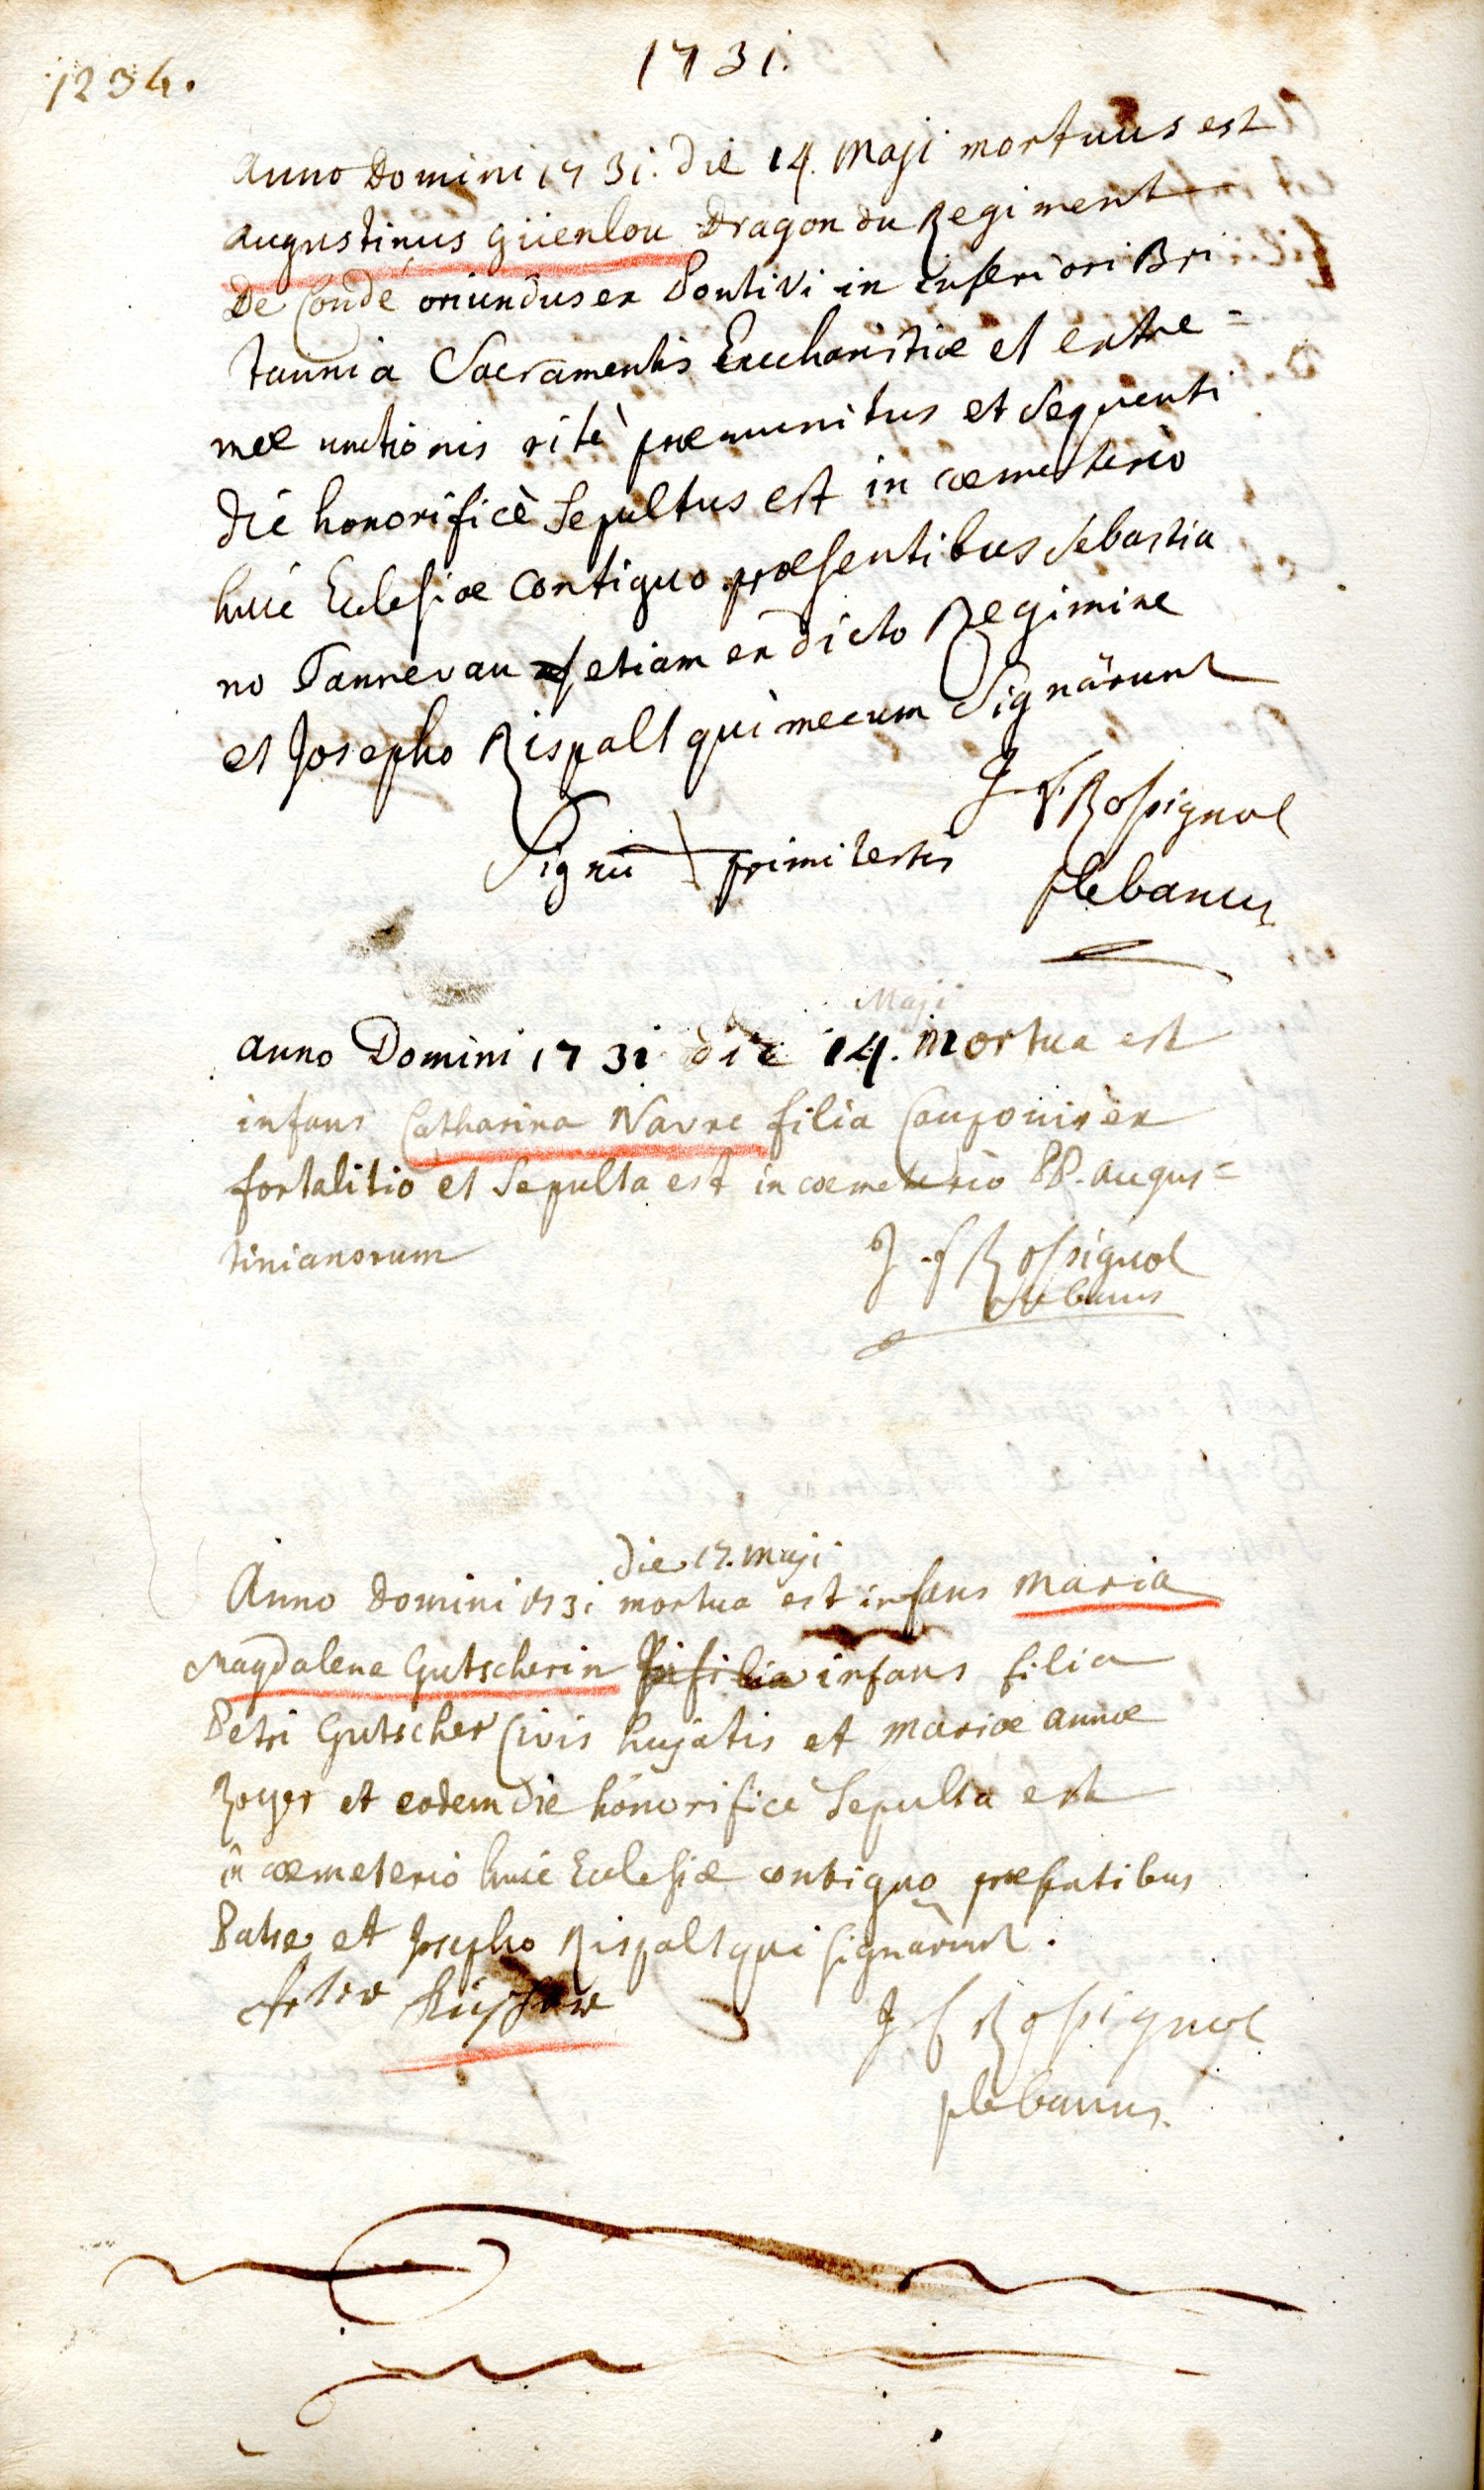 1234.
1731.
Anno Domini 1731. die 14. Maji mortuus est
augustinus güenlou Dragon du Regiment
De Condé oriundus ex Pontivi in inferiori Bri
tannia Sacramentis Eucharistiæ et extre=
mæ unctionis ritè præmunitus et sequenti
die honorificè sepultus est in cœmeterio
huic Ecclesiæ contiguo præsentibus sebastia
no Tannevau etiam ex dicto Regimine
et Josepho Rispalt qui mecum signârunt
J f Rossignol
Signũ primi testis
plebanus
Maji
anno Domini 1731 die 14. mortua est
infans Catharina Navre filia Cauponis ex
fortalitio et sepulta est in cœmeterio PP. augus=
tinianorum
J f Rossignol
plebanus
die 17. Maji
Anno Domini 1731 mortua est infans Maria
Magdalena Gutscherin filia infans filia
Petri Gutscher Civis hujatis et Mariæ annæ
Zoyer et eodem die honorificè sepulta est
in cœmeterio huic Ecclesiæ contiguo præsentibus
Patre et Josepho Rispalt qui signarunt.
Peter
J f Rossignol
plebanus.